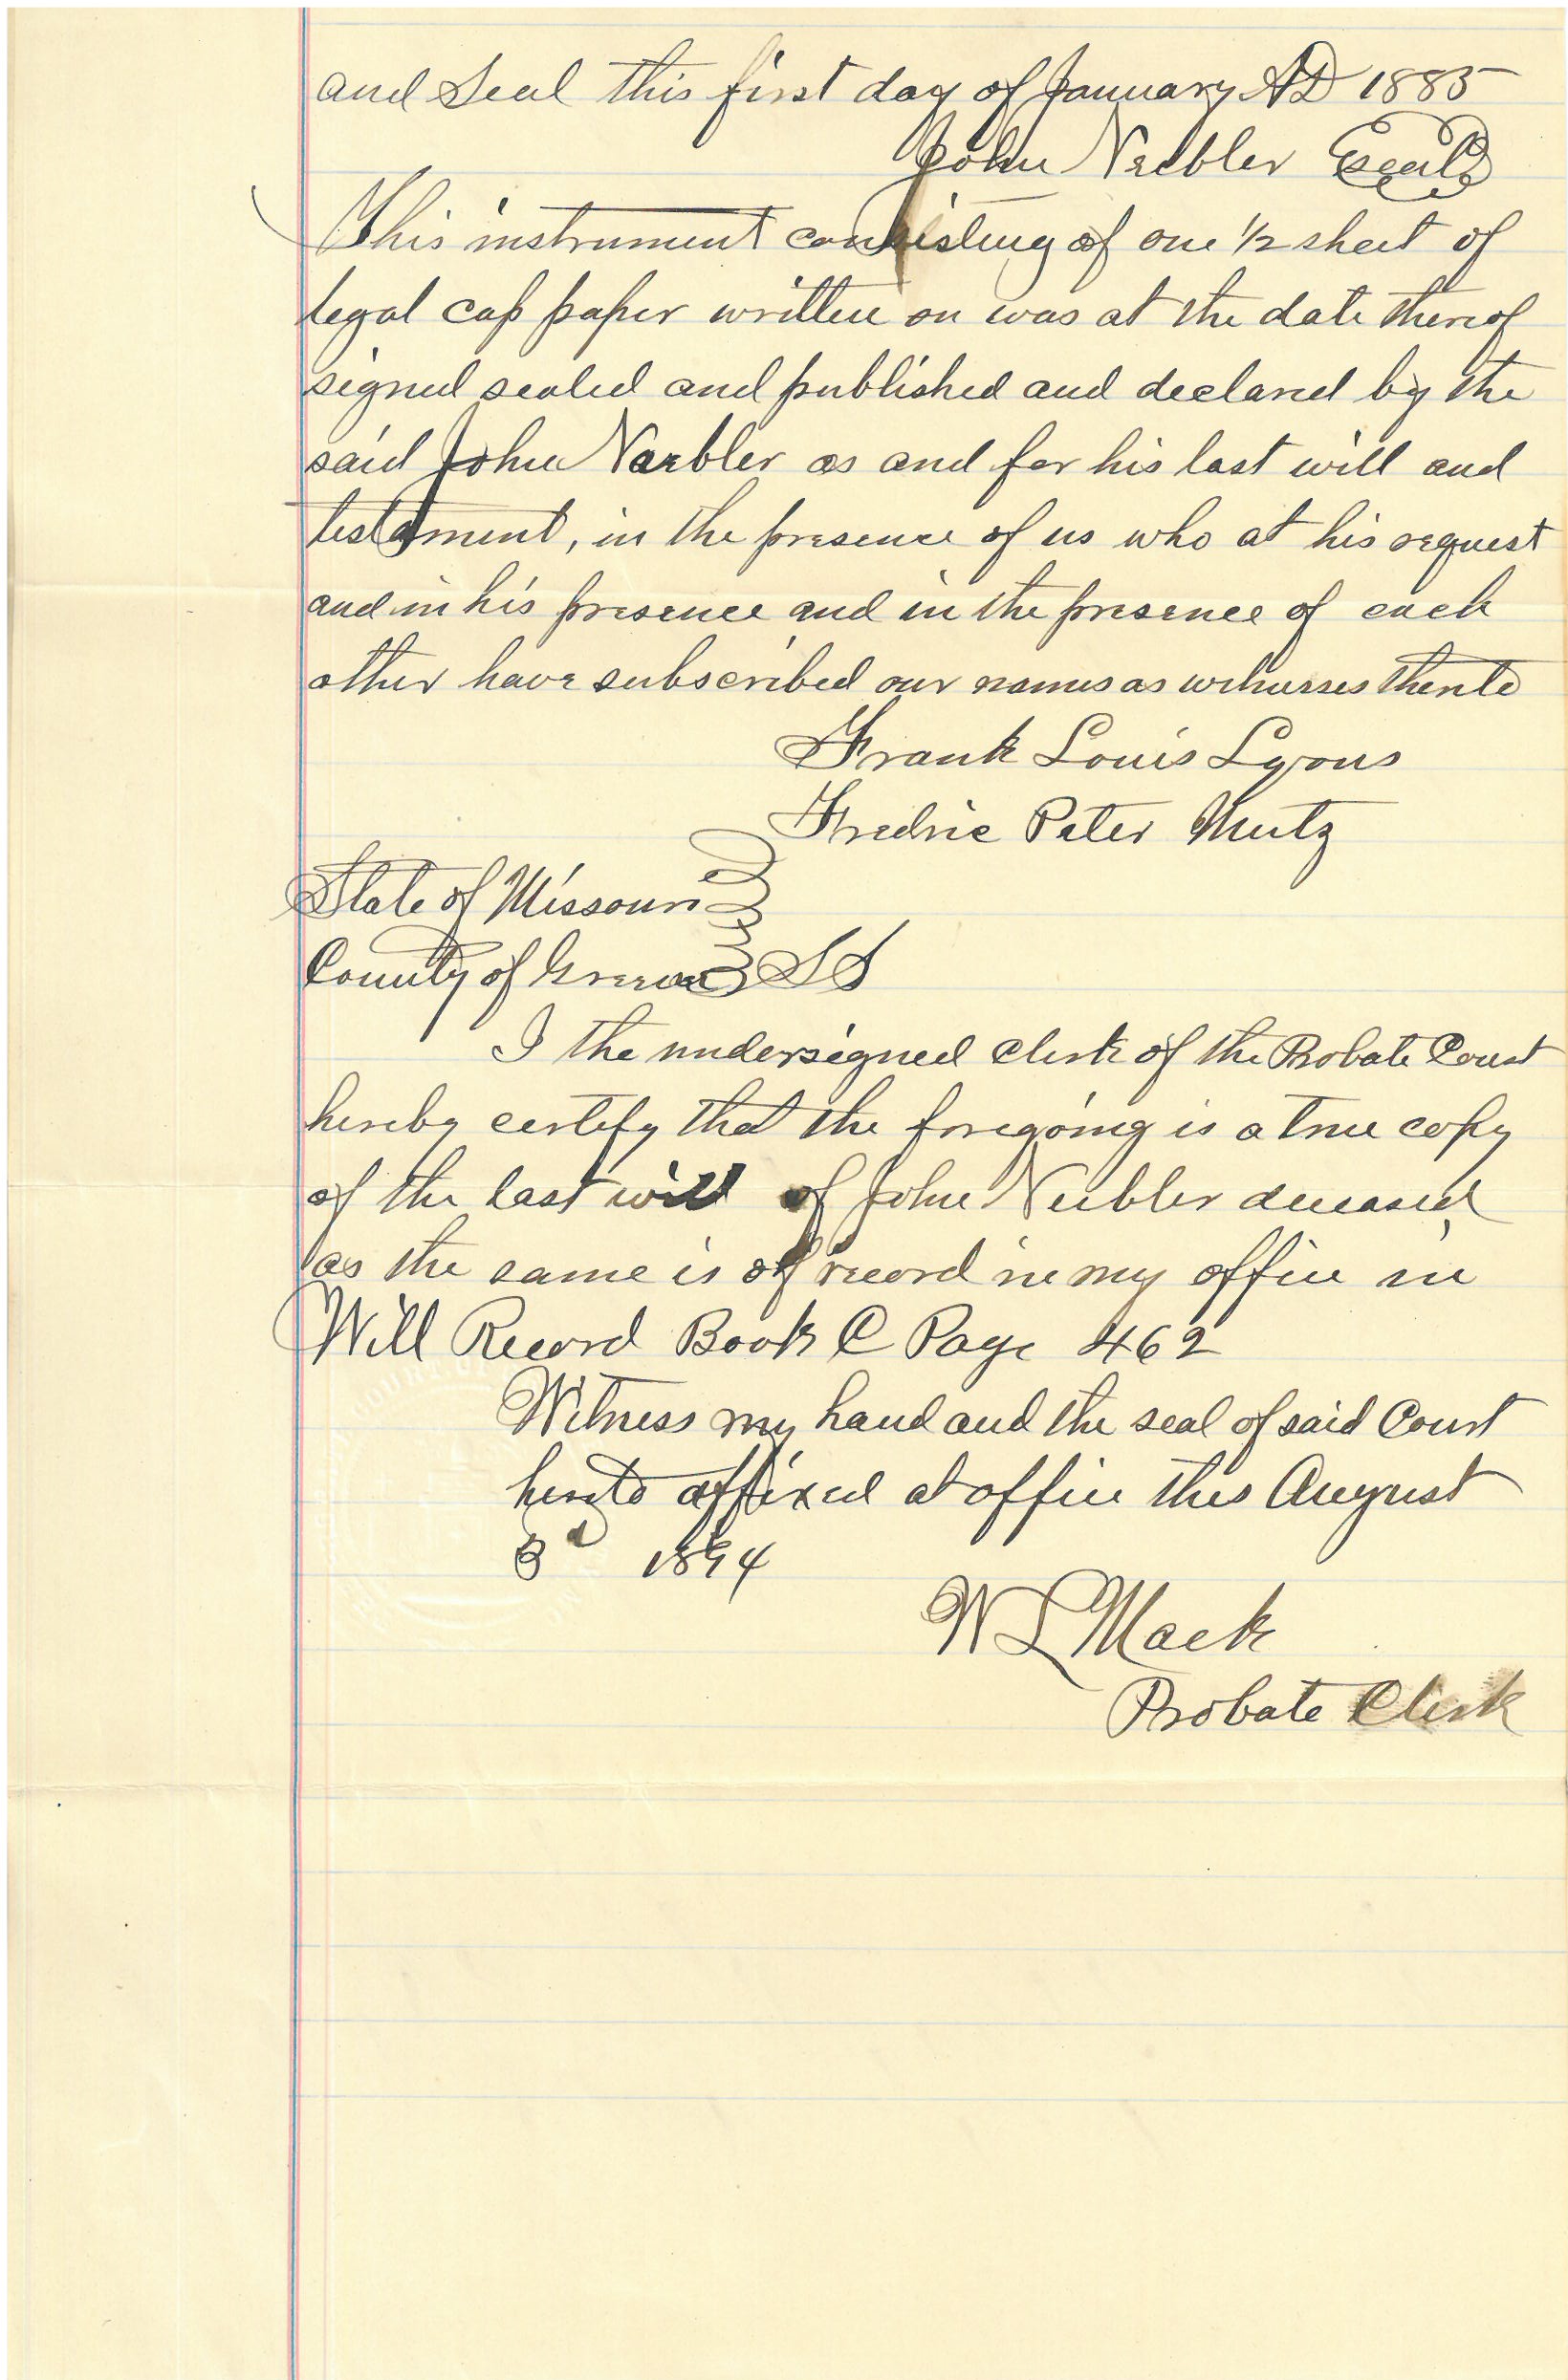 and Seal this first day of January AD 1885
John Neebler (Seal)
This instrument consisting of one 1/2 sheet of
legal cap paper written on was at the date thereof
signed sealed and published and declared by the
said John Neebler as and for his last will and
testament, in the presence of us who at his request
and in his presence and in the presence of each
other have subscribed our names as witnesses thereto
Frank Louis Lyons
Fredric Peter Mutz
State of Missouri
County of Greene SS
I the undersigned clerk of the Probate Court
hereby certify that the foregoing is a true copy
of the last will of John Neebler deceased
as the same is of record in my office in
Will Record Book C Page 462
Witness my hand and the seal of said Court
hereto affixed at office this August
3d 1894
W L Mack
Probate Clerk